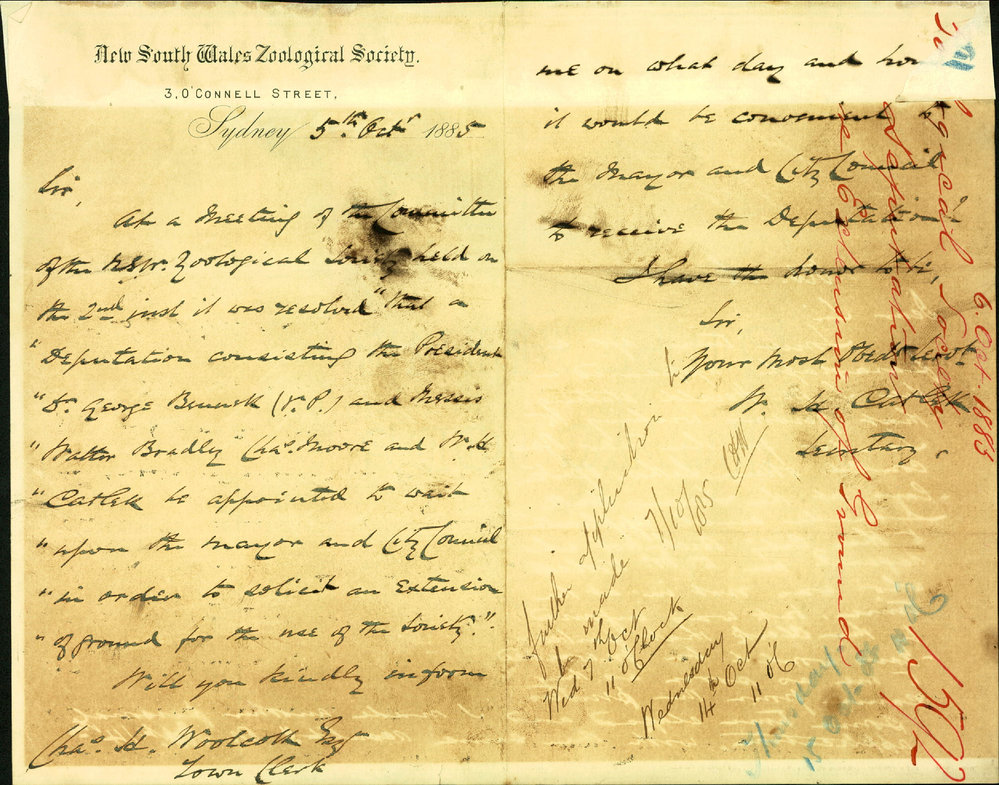 New South Wales Zoological Society.
3, O'CONNELL STREET,
Sydney 5th Octr 1885
Sir,
At a Meeting of the Committee
of the N.S.W. Zoological Society held on
the 2nd inst it was resolved "that a
"Deputation consisting the President
"Dr. George Bennett (V.P.) and Messrs
"Walter Bradly Chas. Moore and W. H
"Catlett be appointed to wait
"upon the Mayor and City Council
"in order to solicit an Extension
"of ground for the use of the Society."
Will you kindly inform
Chas. H. Woolcott Esq
Town Clerk
me on what day and hour
it would be convenient to
the Mayor and City Council
to receive the Deputation.
I have the honor to be,
Sir,
Your Most Obedt servt
W. H Catlett
Secretary.
further application
to be made 7/10/85
CHW
Wed 7th Oct
11 o'clock
Wednesday
14th Oct
11 o'c
Thursday
15 Oct
6. Oct. 1885
Zoological Society
deputation
re Extension of Ground
1592